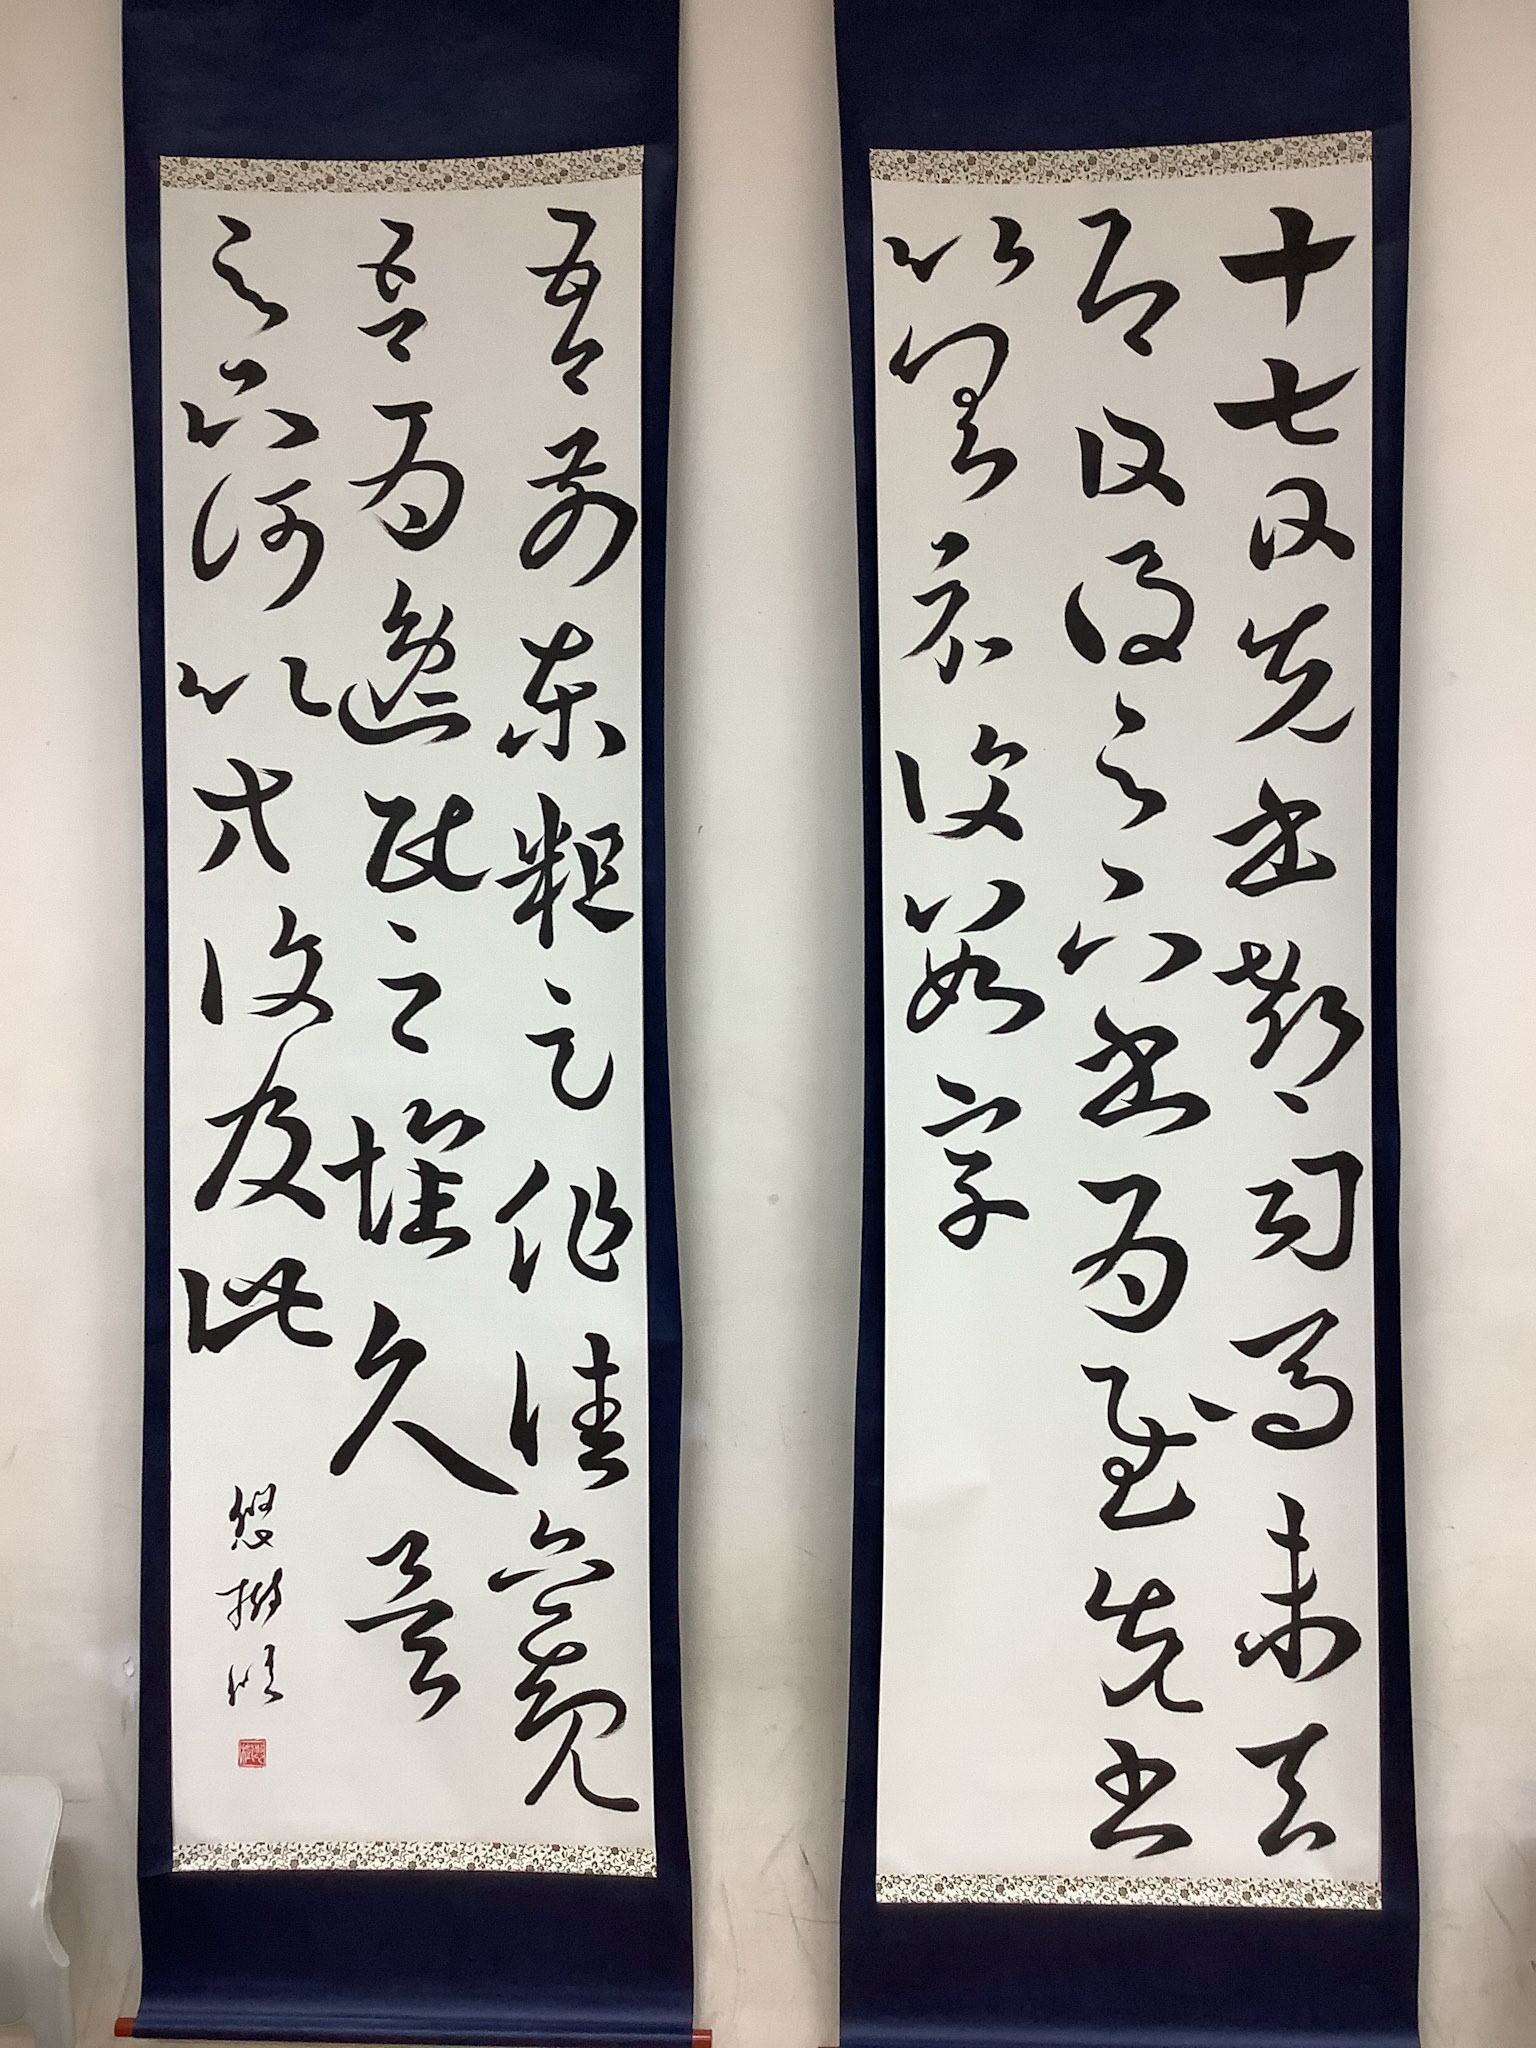 十七日先書郗司馬未去
即日得足下書為慰先書
以具示復數字
吾前東粗足作佳觀
吾為逸民之懷久矣
足下何以方復及此
悠樹臨